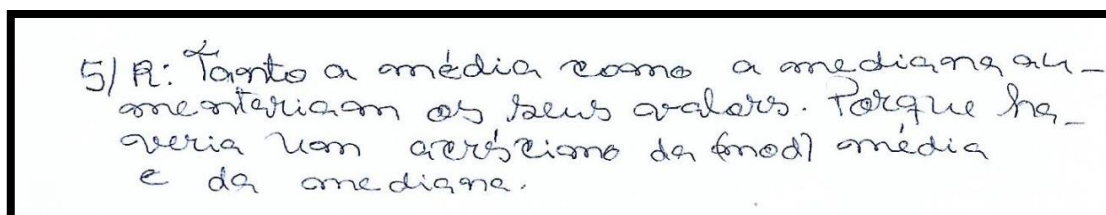 5) R: Tanto a média como a mediana au-
mentariam os seus valors. Porque ha-
veria um acréscimo da (mod) média
e da mediana.